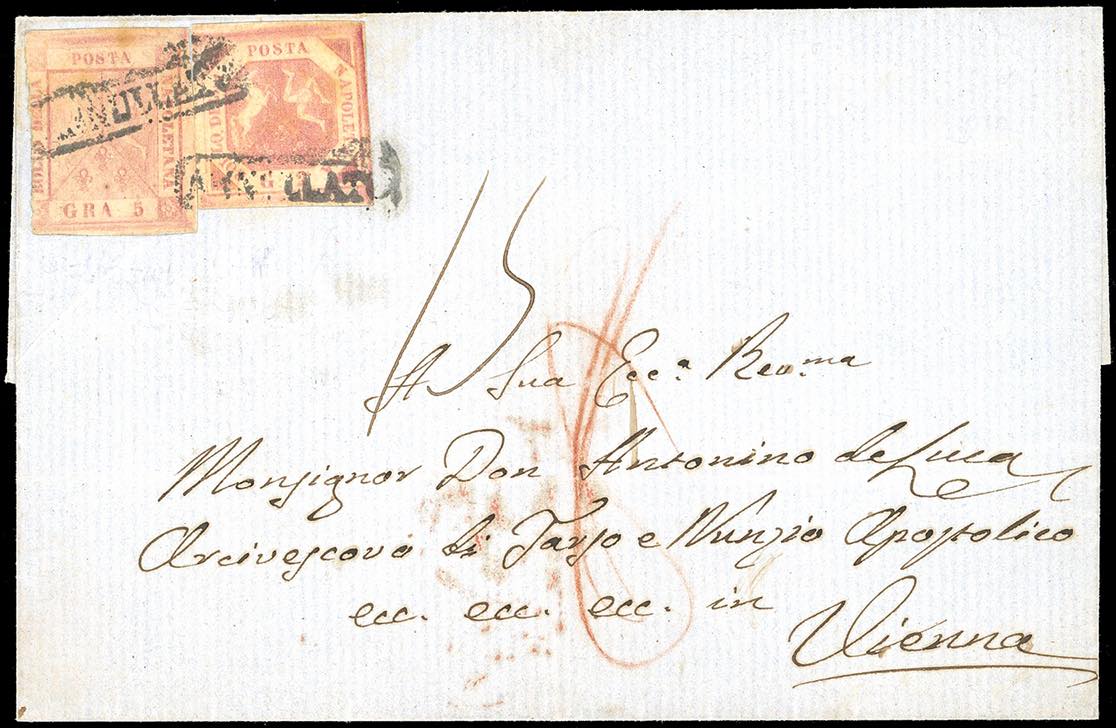 POSTA
BOLLO DELLA
NAPOLETANA
GRA 5
ANNULLATO
POSTA
NAPOLETANA
BOLLO DELLA
G
ANNULLATO
15
A Sua Ecc.a Rev.ma
Monsignor Don Antonino de Luca
Arcivescovo di Tarso e Nunzio Apostolico
ecc. ecc. ecc. in
Vienna